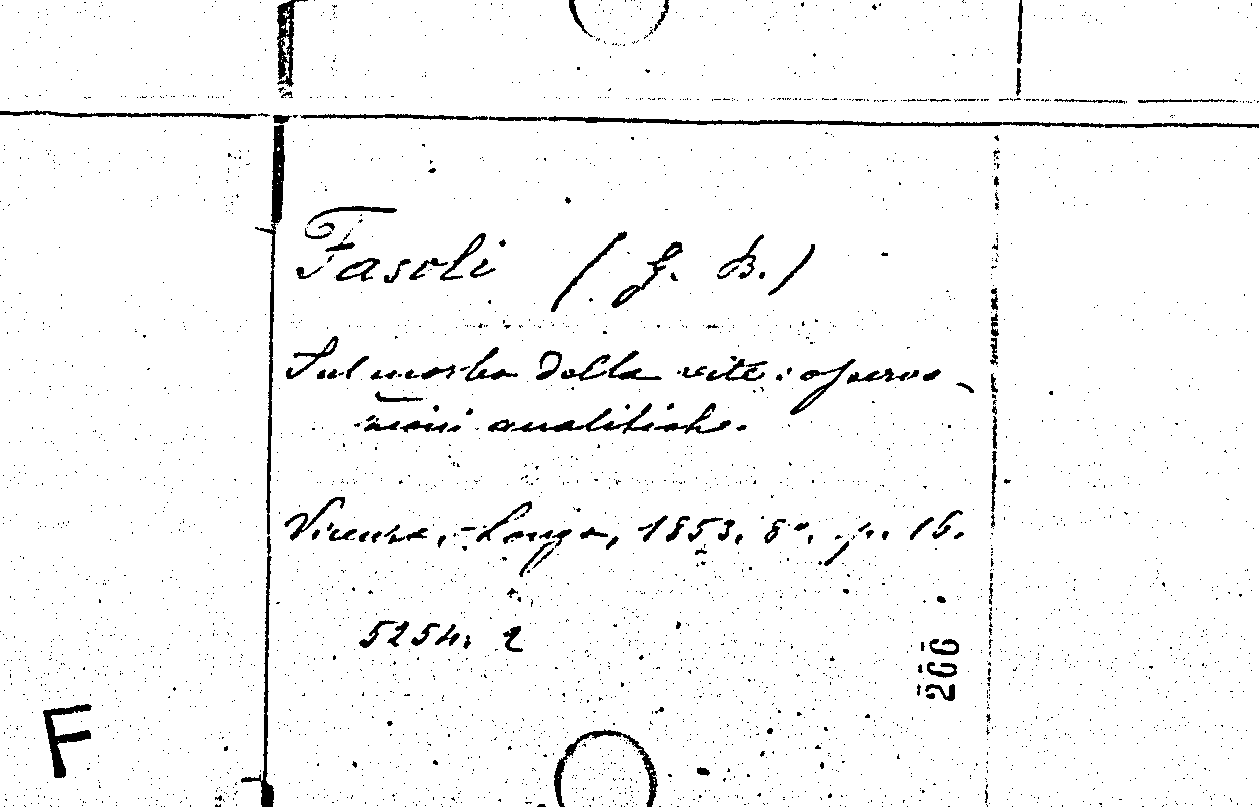 Fasoli (G. B.)
Sul morbo della vite: osserva-
zioni analitiche.
Vicenza, Longo, 1853. 8°. p. 16.
5254. 2
266
F